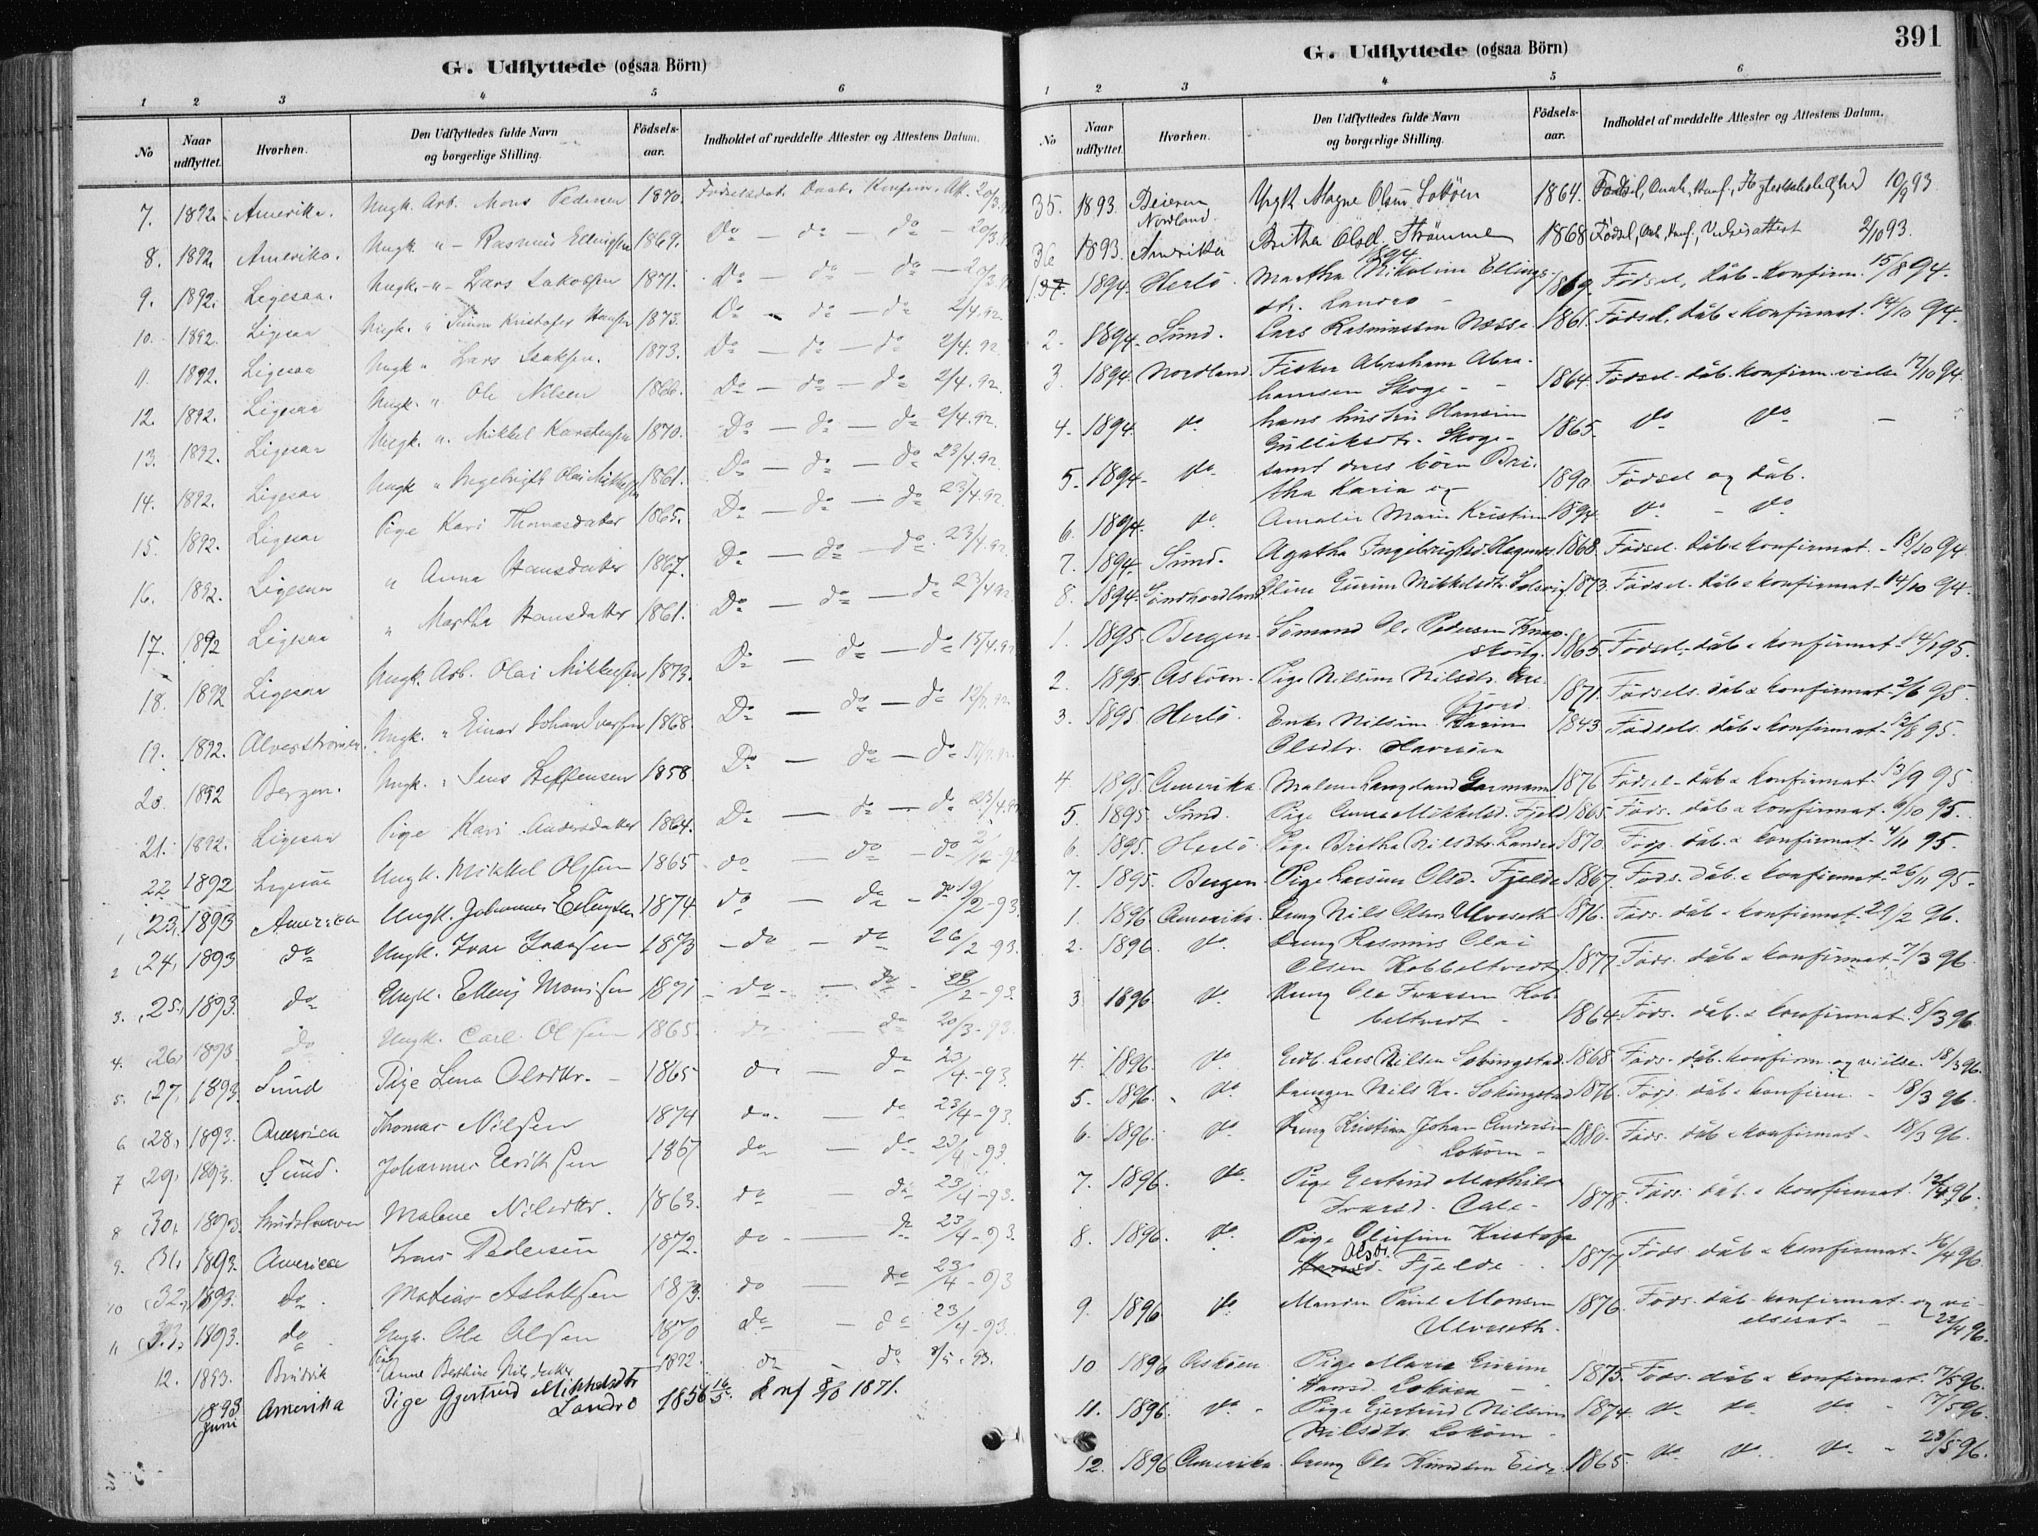 G. Udflyttede (ogsaa Börn)
1 2 3 4 5 6
No Naar udflyttet. Hvorhen. Den Udflyttedes fulde Navn og borgerlige Stilling. Födsels-aar. Indholdet af meddelte Attester og Attestens Datum.
7. 1892. Amerika. Ungk. Arb. Mons Pedersen 1870. Fødselsdat. Daab. Konfirm. Att. 20/3.
8. 1892. Amerika. Ungk. " Rasmus Ellingsen 1869. Do - do - do - 20/3.
9. 1892. Ligesaa. Ungk. " Lars Jakobsen 1871. Do - do - do
10. 1892. Ligesaa Ungk. " Simon Kristofer Hansen 1873. Do - do - do 2/4.92.
11. 1892. Ligesaa Ungk. " Lars Isaksen. 1873. Do - do - do 2/4.92
12. 1892. Ligesaa Ungk. " Ole Nilsen 1866. Do - do - do 2/4.92.
13. 1892. Ligesaa Ungk. " Mikkel Karstensen 1870. Do - do - do 2/4.92.
14. 1892. Ligesaa Ungk " Ingebrigt Olai Mikkelsen 1861. Do - do - do 23/4.92
15. 1892. Ligesaa Pige Kari Thomasdatter 1865. Do - do - do 23/4.92
16. 1892. Ligesaa " Anna Hansdatter 1867. Do - do - do. 23/4.92
17. 1892 Ligesaa " Martha Hansdatter 1861. Do - do - do 23/4.92
18. 1892 Ligesaa Ungk. Arb. Olai Mikkelsen 1873. Do - do - do 15/4.92
19. 1892. Alverstrømmen. Ungk. " Einar Johan Iversen 1868. Do - do - do
20. 1892 Bergen. Ungk. " Jens Steffensen 1858 Do - do - do
21. 1892. Ligesaa Pige Kari Andersdatter 1864. Do - do - do 23/4.92
22 1892 Ligesaa Ungk. Mikkel Olsen 1865 do - do - do
1 (23.) 1893 America Ungk. Johannes Ellingsen 1874 do - do - do 19/2-93.
2 (24) 1893 do Ungk. Ivar Ivarsen 1873 - do - do 26/2-93.
3. (25.) 1893. do Ungk. Elling Monssen 1871 - do - do - 28/2-93.
4. (26) 1893 do Ungk. Carl Olsen 1865 do - do 20/3-93.
5. (27) 1893 Sund Pige Lena Olsdtr. 1865 do - do 23/4-93.
6 (28) 1893. America Thomas Nilsen 1874 do - do 23/4-93.
7 (29) 1893. Sund. Johannes Erik sen 1867 do - do 23/4-93.
8 (30) 1893. Malene Nilsdtr. 1863. do - do 23/4-93.
9. (31) 1893. America Lars Pedersen 1872. do - do 23/4-93
10 (32) 1893. do Matias Aslaksen 1873. do - do 23/4-93
11 (33) 1893. do Ungk. Ole Olsen 1870 do - do 23/4-93.
12. 1893. Bruvik Pige Anne Berthine Nilsdatter 1872. do - do 3/5.93.
1893 Juni Amerika Pige Gjertrud Mikkelsdtr Landrø 1856 16/5. Konf 8/6 1871.
G. Udflyttede (ogsaa Börn) 391
1 2 3 4 5 6
No Naar udflyttet. Hvorhen. Den Udflyttedes fulde Navn og borgerlige Stilling. Födsels-aar. Indholdet af meddelte Attester og Attestens Datum.
35. 1893. Beieren Nordland. Ungk Magne Olsen Lokøen 1864. Fødsel, Daab, Konf., 10/9 93
36 1893. Amerika Britha Olsd. Strømme 1868 Fødsel, Daab, Konf., 2/10 93.
1894
1. 1894. Herlö. Martha Nikoline Ellings-
dtr. Landro - 1869. Födsel, dåb & Konfirm. 15/8 94.
2. 1894. Sund. Lars Rasmussen Næsse 1861. Födsel. dåb & konfirmat. 14/10 94.
3. 1894. Nordland. Fisker Abraham Abra-
hamsen Skoge - 1864. Födsel dåb. konfirm. vielse 17/10 94.
4. 1894. do. hans hustru Hansine
Gulliksdtr. Skoge 1865. do do -
5. 1894. do. samt deres börn Bri-
tha Karia og 1890. Födsel og dåb.
6. 1894. do. Amalie Marie Kristine 1894. do - do
7. 1894. Sund. Agatha Ingebrigtsd. Hagenes 1868. Födsel. dåb & konfirmat. 18/10 94.
8. 1894. Söndhordland. Eline Gurine Mikkelsdtr. Solsvig 1873. Födsel. dåb & konfirmat. 14/10 94.
1. 1895. Bergen. Sömand Ole Pedersen Knap-
skog. 1865. Födsel. dåb & konfirmat. 95.
2. 1895. Askøen. Pige Nilsine Nilsdtr.
fjord 1871. Födsels. dåb & konfirmat. 2/6 95.
3. 1895 Herlö. Enke Nilsine Karine
Olsdtr. 1843. Födsels. dåb & konfirmat. 95.
4 1895. Amerika. Malene Langeland Garmann 1876 Födsel. dåb & konfirmat. 13/9 95
5. 1895. Sund. Pige Anna Mikkelsd. Fjeld 1865 Föds. dåb & konfirmat. 6/10 95.
6. 1895. Herlö. Pige Britha Nilsdtr. Landro 1870. Föds. dåb. & konfirmat. 4/11 95.
7. 1895. Bergen. Pige Larsine Olsd. Fjelde 1867. Föds. dåb. & konfirmat. 26/11 95.
1. 1896. Amerika. Dreng Nils Olsen Ulveseth 1876. Föds. dåb & konfirmat. 29/2 96.
2. 1896. do. Dreng Rasmus Olai
Olsen Kobbeltvedt 1877. Föds. dåb & konfirmat. 7/3 96.
3 1896 do. Dreng Ole Ivarsen Kob-
beltvedt - 1864. Föds. dåb. & konfirmat. 8/3 96.
4. 1896. do. Lars Nilsen Solingstad 1868 Föds. dåb. konfirm. og vielse. 18/3 96.
5. 1896. do. Drengen Nils Kr. Solingstad 1876. Föds. dåb & konfirm. - 18/3 96.
6. 1896. do. Dreng Kristian Johan Andersen
Loköen - 1880. Föds. dåb & konfirmat. 18/3 96.
7. 1896. do. Pige Gertrud Mathilde
Ivarsd. Cale - 1878. Föds. dåb. & konfirmat. 12/4 96.
8. 1896. do. Pige Olufine Kristofa
Olsdr. Fjelde 1877. Föds dåb & konfirmat. 16/4 96.
9. 1896 do. Manden Paul Monsen
Ulveseth. 1876. Föds. dåb konfirmat. og vi-
elserat. 22/4 96.
10 1896 Askøen. Pige Marie Gurine
Hansd. Lokøen - 1875. Föds. dåb & konfirmat. 17/5 96.
11. 1896. do. Pige Gjertrud Nilsine
Nilsdtr. Lokøen - 1874. do do do - 17/5 96.
12. 1896 Amerika. Dreng Ole Knudsen Eide 1865 do do do - 23/5 96.